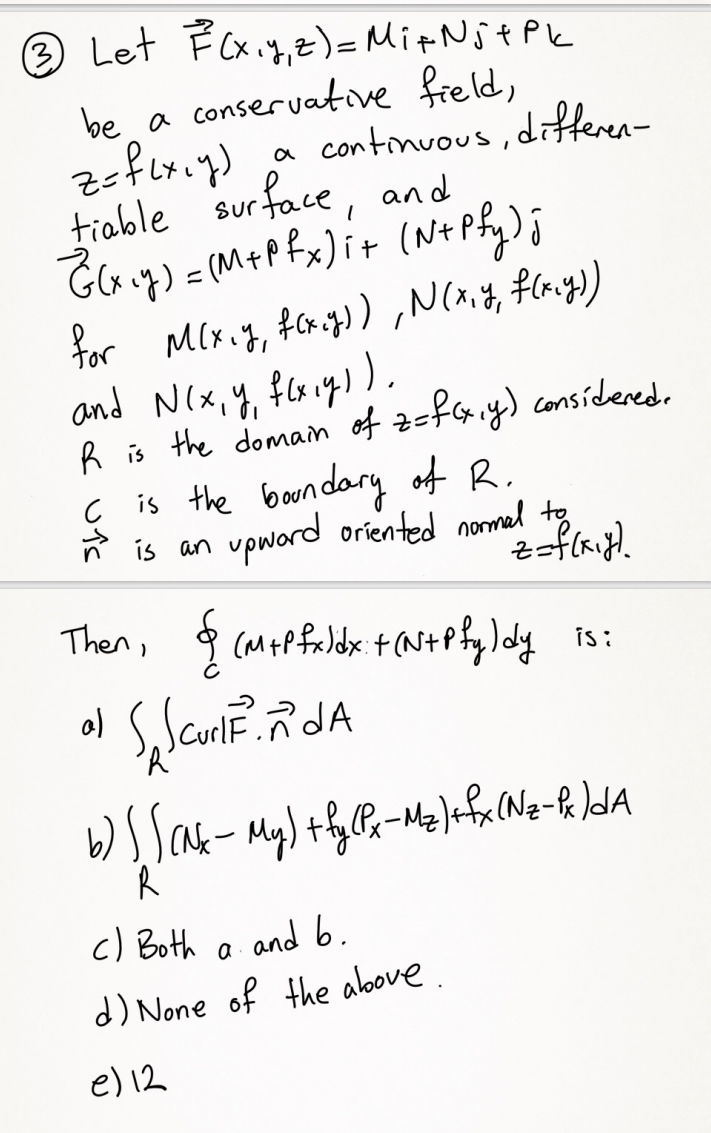 ③ Let F⃗(x,y,z)=Mi+Nj+Pk
be a conservative field,
z=f(x,y) a continuous, differen-
tiable surface, and
G⃗(x,y)=(M+Pfx)i+(N+Pfy)j
for M(x,y,f(x,y)), N(x,y,f(x,y))
and N(x,y,f(x,y)).
R is the domain of z=f(x,y) considered.
C is the boundary of R.
n⃗ is an upward oriented normal to
z=f(x,y).
Then, ∮_C (M+Pfx)dx+(N+Pfy)dy is:
a) ∫_R∫CurlF⃗.n⃗ dA
b) ∫∫_R (Nx-My)+fy(Px-Mz)+fx(Nz-Px)dA
c) Both a and b.
d) None of the above.
e) 12